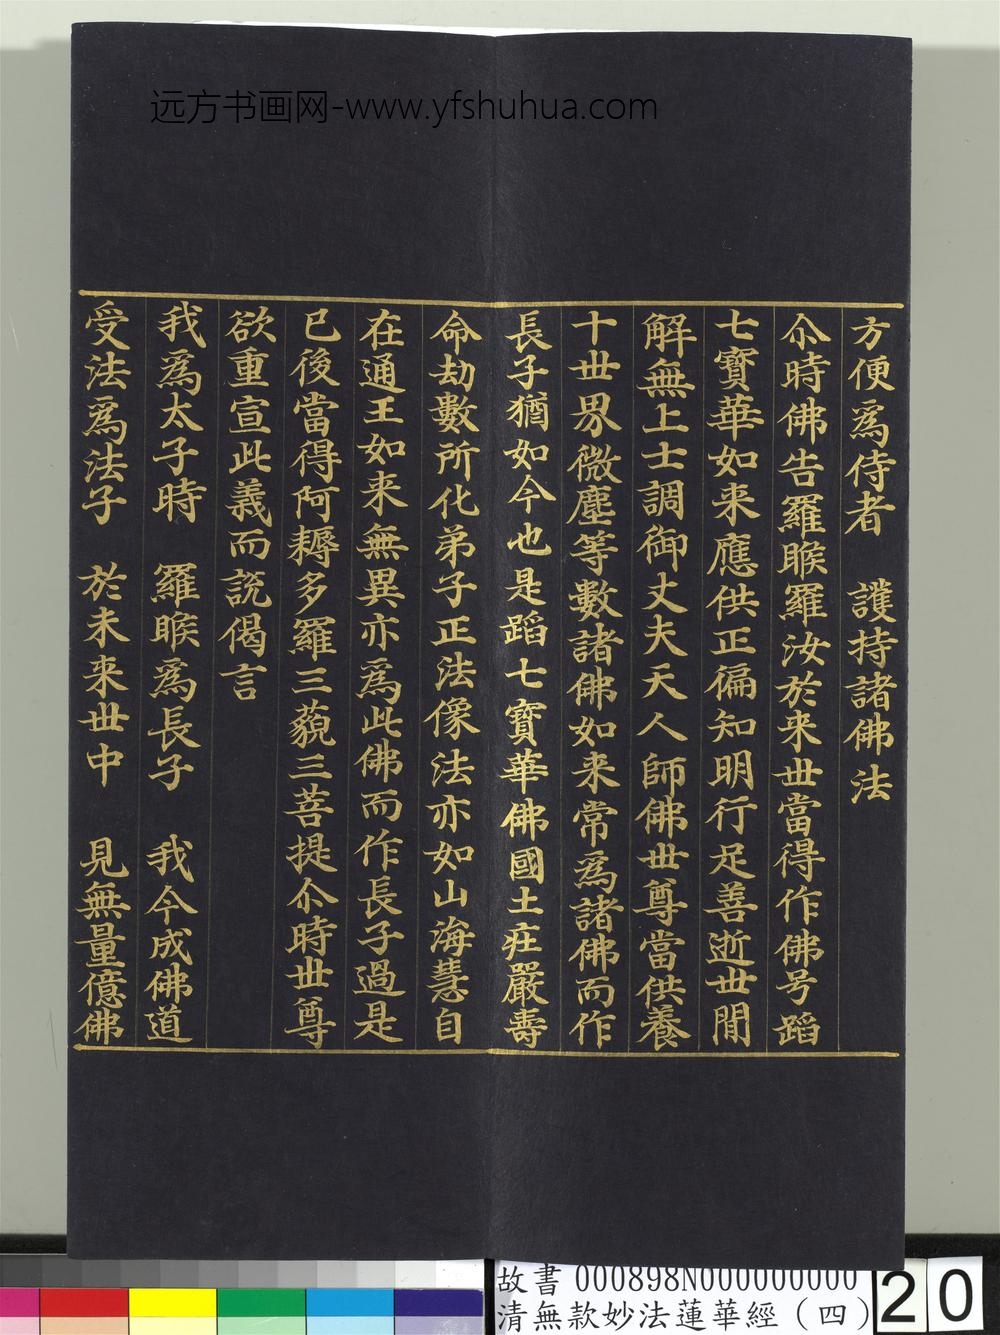 远方书画网-www.yfshuhua.com
方便為侍者　護持諸佛法
尒時佛告羅睺羅汝於来世當得作佛号蹈
七寶華如来應供正徧知明行足善逝世間
解無上士調御丈夫天人師佛世尊當供養
十世界微塵等數諸佛如来常為諸佛而作
長子猶如今也是蹈七寶華佛國土莊嚴壽
命劫數所化弟子正法像法亦如山海慧自
在通王如来無異亦為此佛而作長子過是
已後當得阿耨多羅三藐三菩提尒時世尊
欲重宣此義而說偈言
我為太子時　羅睺為長子　我今成佛道
受法為法子　於未来世中　見無量億佛
故書 000898N000000000
清無款妙法蓮華經（四）
20